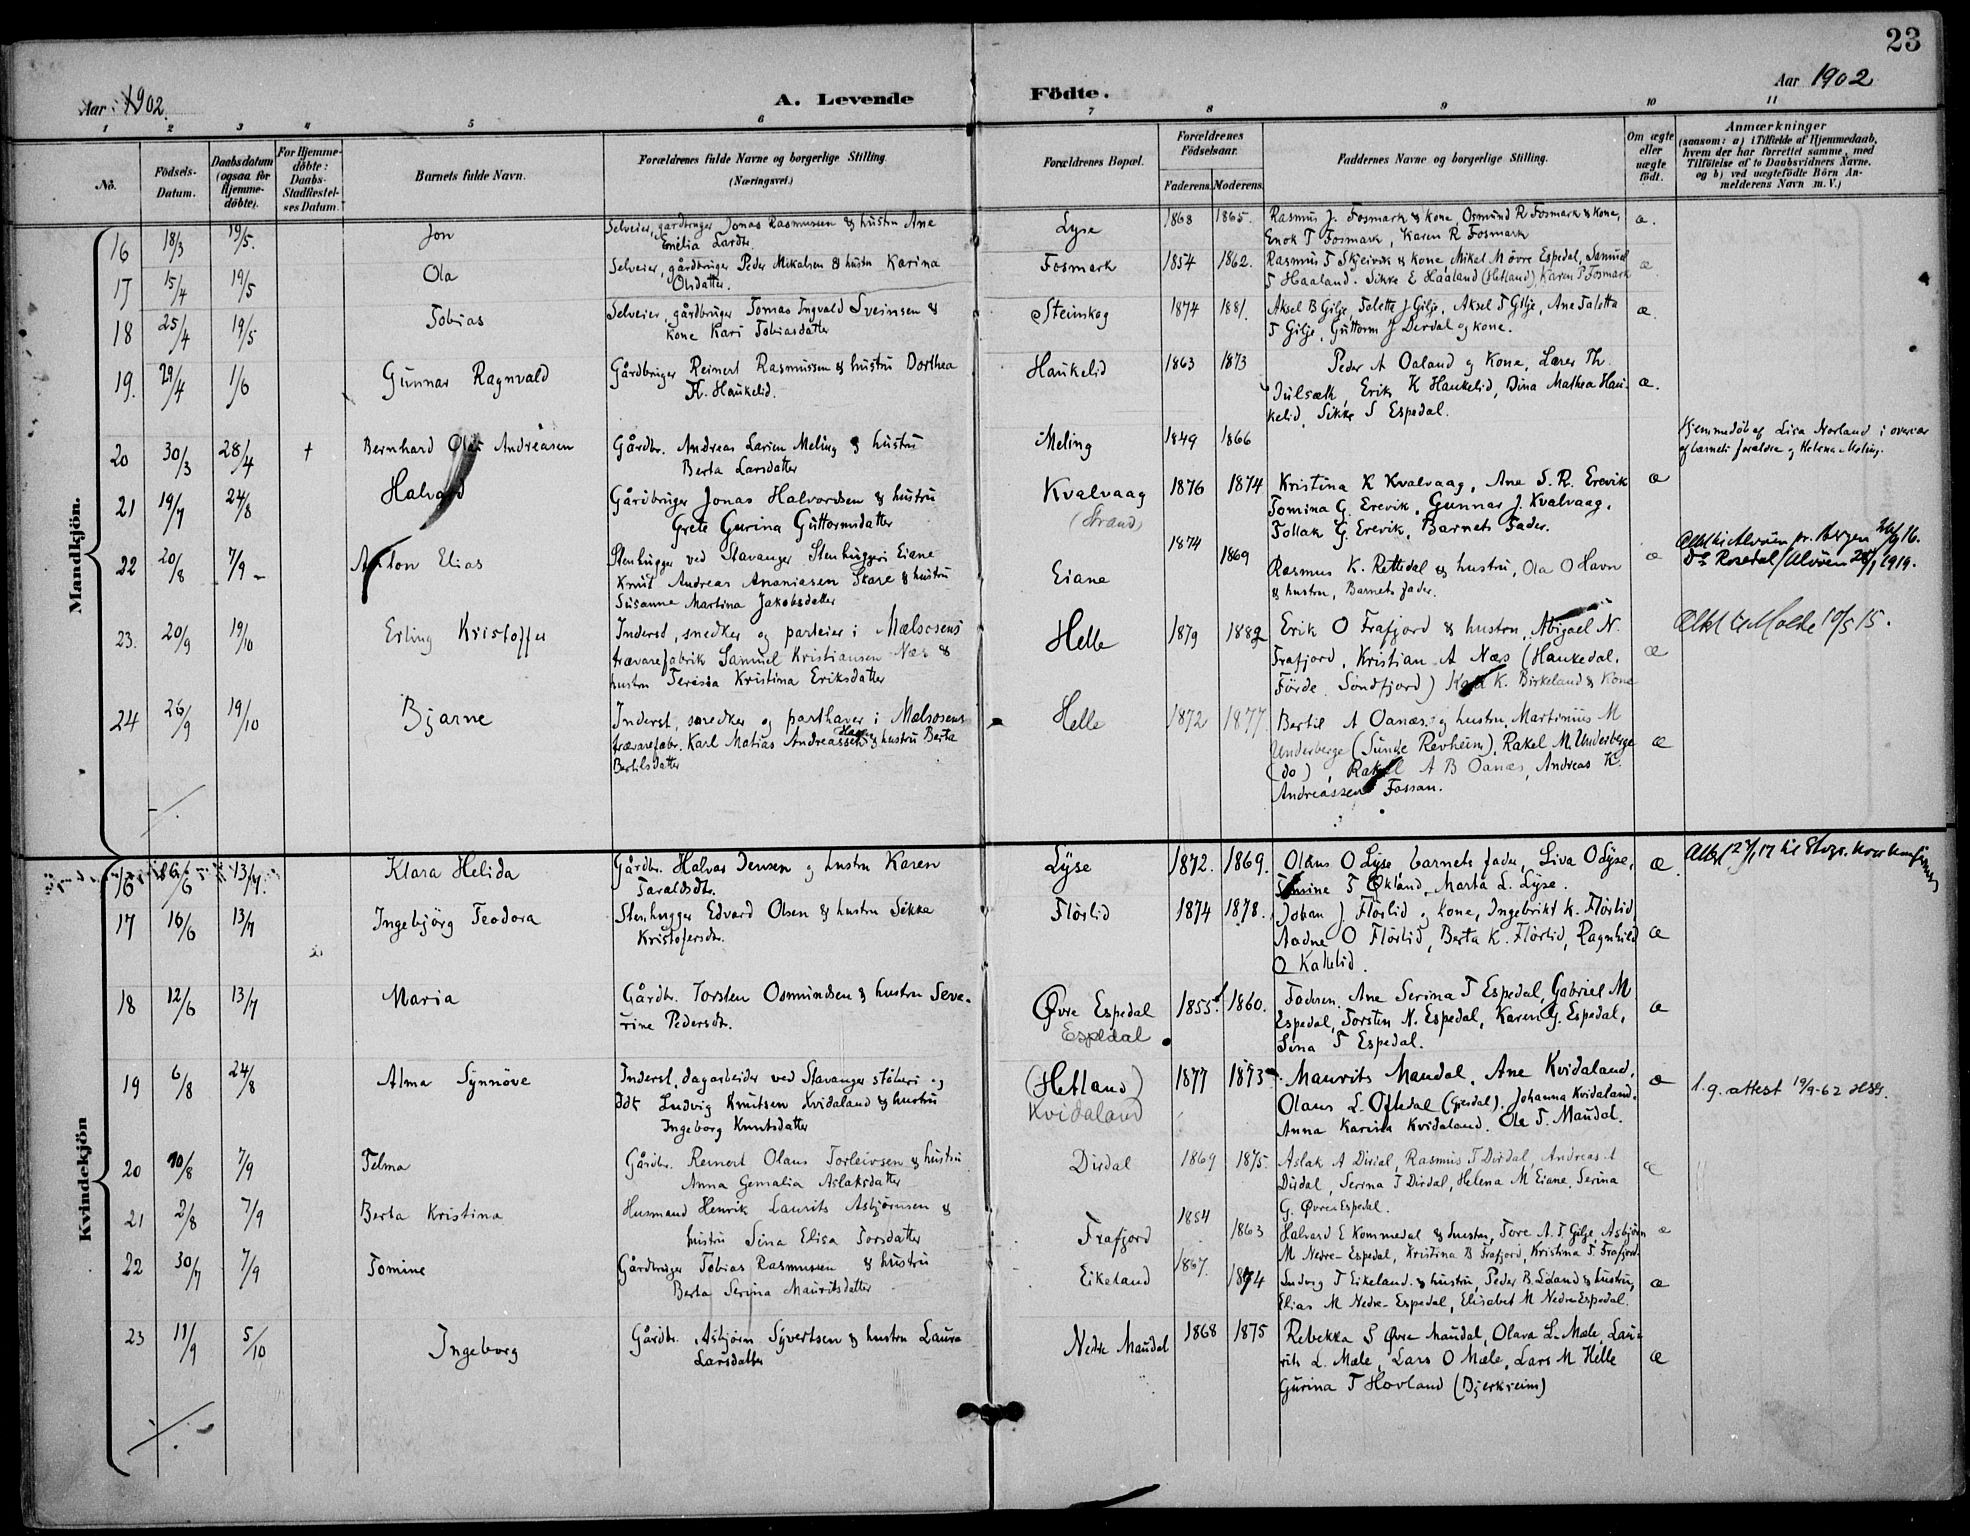 23
Aar 1902.
A. Levende Födte.
Aar 1902
1 2 3 4 5 6 7 8 9 10 11
No.
Födsels-Datum.
Daabsdatum (ogsaa for Hjemme-döbte).
For Hjemme-döbte: Daabs-Stadfæstel-ses Datum.
Barnets fulde Navn.
Forældrenes fulde Navne og borgerlige Stilling. (Næringsvei.)
Forældrenes Bopæl.
Forældrenes Födselsaar.
Faderens. Moderens.
Faddernes Navne og borgerlige Stilling.
Om ægte eller uægte födt.
Anmærkninger
(saasom: a) i Tilfælde af Hjemmedaab, hvem der har forrettet samme, med Tilföielse af to Daabsvidners Navne, og b) ved uægtefödte Börn An-melderens Navn m. V.)
Mandkjön.
16 18/3 19/5. Jon Selveier, gårdbruger Jonas Rasmussen & hustru Ane Lyse 1868 1865. Rasmus J. Fosmark & kone, Osmund R Fosmark & kone, æ.
Emilia Larsdtr. Enok T Fosmark, Karen R Fosmark
17 15/4 19/5 Ola Selveier, gårdbruger Peder Mikalsen & hustru Karina Fosmark 1854 1862. Rasmus T Skjeivik & kone, Mikel M övre Espedal, Samuel æ
Olsdatter. T Haaland. Sikke E Haaland (Hetland) Karen P Fosmark
18 25/4 19/5 Tobias Selveier, gårdbruger Tomas Ingvald Sveinsen & Steinskog 1874 1881. Aksel B Gilje, Talette J Gilje, Aksel T Gilje, Ane Taletta æ.
kone Kari Tobiasdatter T Gilje, Guttorm J Dirdal og kone.
19. 29/4 1/6 Gunnar Ragnvald Gårdbruger Reinert Rasmussen & hustru Dorthea Haukelid 1863 1873 Peder A Oaland og Kone, Lærer Th.
K. Haukelid. Julsæth, Erik K Haukelid, Dina Mathea Hau- æ.
kelid, Sikke S Espedal.
20 30/3 28/4 + Bernhard Olai Andreasen Gårdbr. Andreas Larsen Meling & hustru Meling 1849 1866 Hjemmedöbt af Lisa Norland i overvær
Berta Larsdatter af barnets forældre og Helena Meling.
21 19/7 24/8 Halvard Gårdbruger Jonas Halvordsen & hustru Kvalvaag 1876 1874 Kristina K Kvalvaag, Ane S. R. Erevik æ
Grete Gurina Guttormsdatter (Strand) Tomina G. Erevik, Gunnar J. Kvalvaag,
Follak G. Erevik, Barnets Fader.
22 20/8 7/9 Anton Elias Stenhugger ved Stavanger Stenhuggeri Eiane Eiane 1874 1869 Rasmus K. Rettedal & hustru, Ola O Havn æ
Knut Andreas Ananiasen Skare & hustru & hustru, Barnets fader.
Susanne Martina Jakobsdatter
23. 20/9 19/10 Erling Kristoffer Inderst, snedker og parteier i Mælsosens Helle 1879 1882 Erik O Frafjord & hustru, Abigael N.
trævarefabrik Samuel Kristiansen Næs & Frafjord, Kristian A Næss (Haukedal, æ
hustru Teresia Kristina Eriksdatter Förde, Söndfjord) K. Birkeland & kone
24 26/9 19/10 Bjarne Inderst, snedker og parthaver i Mælsosens Helle 1872 1877 Bertil A Oanæs, og hustru, Martinius M
trævarefabr. Karl Matias Andreassen & hustru Berta Underberge (Sunde Revheim), Rakel M. Underberge æ
Bertilsdatter (do), Rakel A B Oanæs, Andreas K.
Andreassen Fossan.
Kvindekjön
16 26/6 13/7. Klara Helida Gårdbr. Halvar Jensen og hustru Karen Lyse 1872. 1869. Olaus O Lyse, barnets fader, Liva O Lyse, æ.
Taraldsdtr. T Økland, Marta L. Lyse.
17 16/6 13/7 Ingebjörg Teodora Stenhugger Edvard Olsen & hustru Sikka Flörlid 1874 1878. Johan J Flörlid og kone, Ingebrikt K. Flörlid,
Kristofersdtr. Aadne O Flörlid, Berta K. Flörlid, Ragnhild æ
O Kallelid.
18 12/6 13/7 Maria Gårdbr. Torsten Osmundsen & hustru Seve- Øvre Espedal 1855 1860. Faderen, Ane Serina T Espedal, Gabriel M
rine Pedersdtr. Espedal Espedal, Torsten N. Espedal, Karen G. Espedal, æ
Sina T Espedal.
19 6/8 24/8 Alma Synnöve Inderst, dagarbeider ved Stavanger stöberi og (Hetland) 1877 1873 Maurits Maudal, Ane Kvidaland, æ l. g. attest 19/9-62
Ludvig Knutsen Kvidaland & hustru Kvidaland Olaus L. Oftedal (Gjesdal). Johanna Kvidaland,
Ingeborg Knutsdatter Anna Karina Kvidaland. Ole T. Maudal.
20 10/8 7/9 Telma Gårdbr. Reinert Olaus Torleivsen & hustru Dirdal 1869 1875. Aslak A Dirdal, Rasmus T Dirdal, Andreas A æ
Anna Gemalia Aslaksdatter Dirdal, Serina T Dirdal, Helena M Eiane, Serina
G. Øvre Espedal.
21 2/8 7/9 Berta Kristina Husmand Henrik Laurits Asbjörnsen & Frafjord 1854 1863 Halvard E Kommedal & hustru, Tore A. T. Gilje, Asbjörn æ
hustru Sina Elisa Torsdatter M Nedre-Espedal, Kristina B Frafjord, Kristina T. Frafjord
22 30/7 7/9 Tomine Gårdbruger Tobias Rasmussen & hustru Eikeland 1867. 1874 Ludvig T Eikeland & hustru, Peder B. Eiland & hustru, æ
Berta Serina Mauritsdatter Elias M Nedre-Espedal, Elisabet M Nedre Espedal.
23 11/9 5/10 Ingeborg Gårdbr. Asbjörn Syvertsen & hustru Laura Nedre Maudal 1868 1875 Rebekka S Øvre Maudal, Olava L. Mæle, Lau-
Larsdatter rits L. Mæle, Lars O Mæle, Lars M Helle æ
Gurina T Hovland (Bjerkreim)